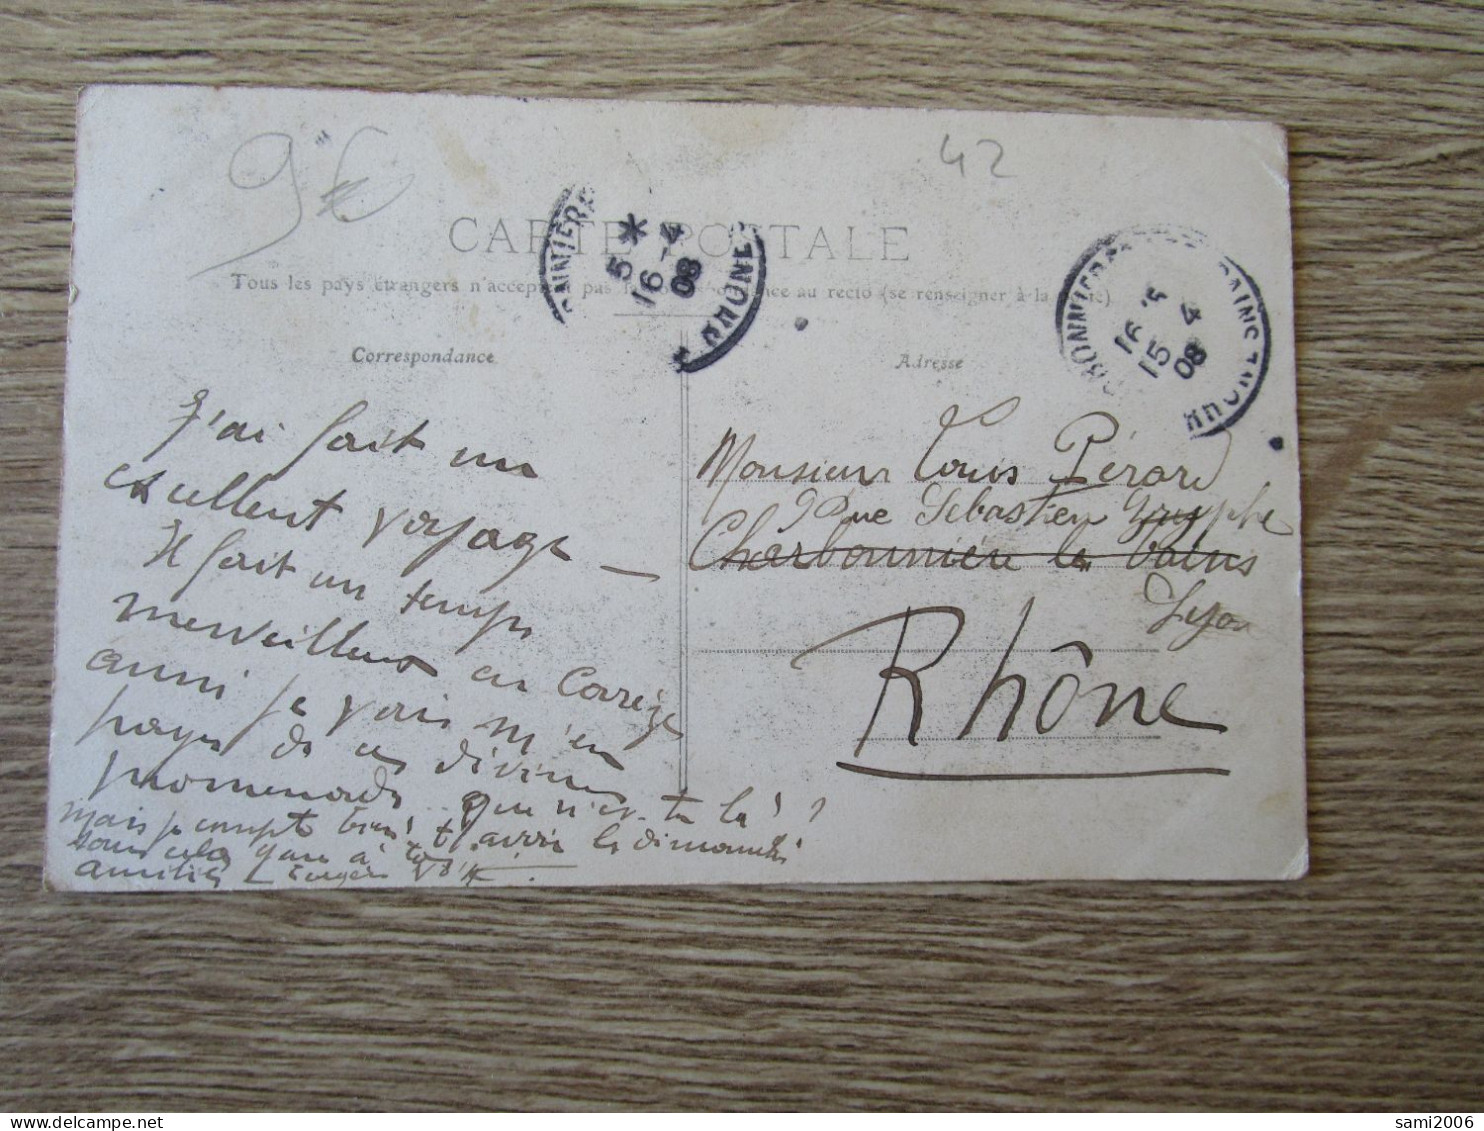 9€
42
CARTE POSTALE
Tous les pays étrangers n'acceptent pas la correspondance au recto (se renseigner à la poste)
Correspondance
Adresse
CHARBONNIERES-LES-BAINS RHONE
5 *
16 -4
08
CHARBONNIERES-LES-BAINS RHONE
16 15
15 4
08
J'ai fait un
excellent voyage —
Il fait un temps
merveilleux en Corrèze
aussi je vais m'en
payer de ces divines
promenades. Que n'es-tu là ?
mais je compte bien t'avoir le dimanche
amitiés
Monsieur Louis Pérard
9 Rue Sébastien Gryphe
Charbonnière les bains
Lyon
Rhône
sami2006